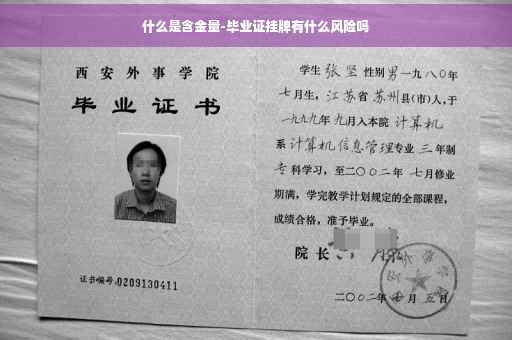 什么是含金量-毕业证挂牌有什么风险吗
西安外事学院
毕业证书
证书编号:0209130411
学生 张坚 性别男一九八〇年
七月生，江苏省 苏州县(市)人，于
一九九九年 九月入本院 计算机
系 计算机信息管理专业 三 年制
专科学习，至二〇〇二年 七月修业
期满，学完教学计划规定的全部课程，
成绩合格，准予毕业。
院长
二〇〇二年 月 五日